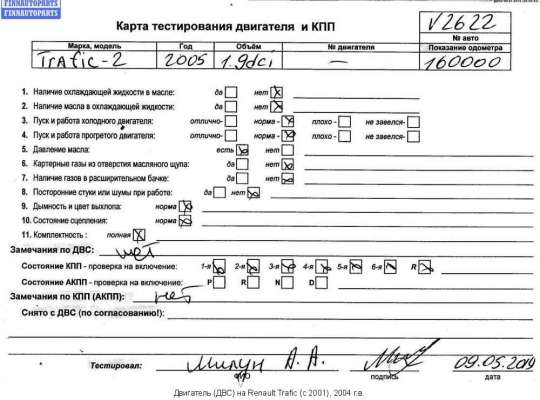 FINNAUTOPARTS
FINNAUTOPARTS
Карта тестирования двигателя и КПП
V2622
№ авто
Марка, модель Год Объём № двигателя Показание одометра
Trafic-2 2005 1.9dci — 160000
1. Наличие охлаждающей жидкости в масле: да нет
2. Наличие масла в охлаждающей жидкости: да нет
3. Пуск и работа холодного двигателя: отлично- норма - плохо - не завелся-
4. Пуск и работа прогретого двигателя: отлично- норма - плохо - не завелся-
5. Давление масла: есть нет
6. Картерные газы из отверстия масляного щупа: да нет
7. Наличие газов в расширительном бачке: да нет
8. Посторонние стуки или шумы при работе: да нет
9. Дымность и цвет выхлопа: норма
10. Состояние сцепления: норма
11. Комплектность : полная
Замечания по ДВС: нет
Состояние КПП - проверка на включение: 1-я 2-я 3-я 4-я 5-я 6-я R
Состояние АКПП - проверка на включение: P R N D
Замечания по КПП (АКПП): нет
Снято с ДВС (по согласованию!):
Тестировал: Милун А. А. 09.05.2019
ФИО подпись дата
Двигатель (ДВС) на Renault Trafic (с 2001), 2004 г.в.